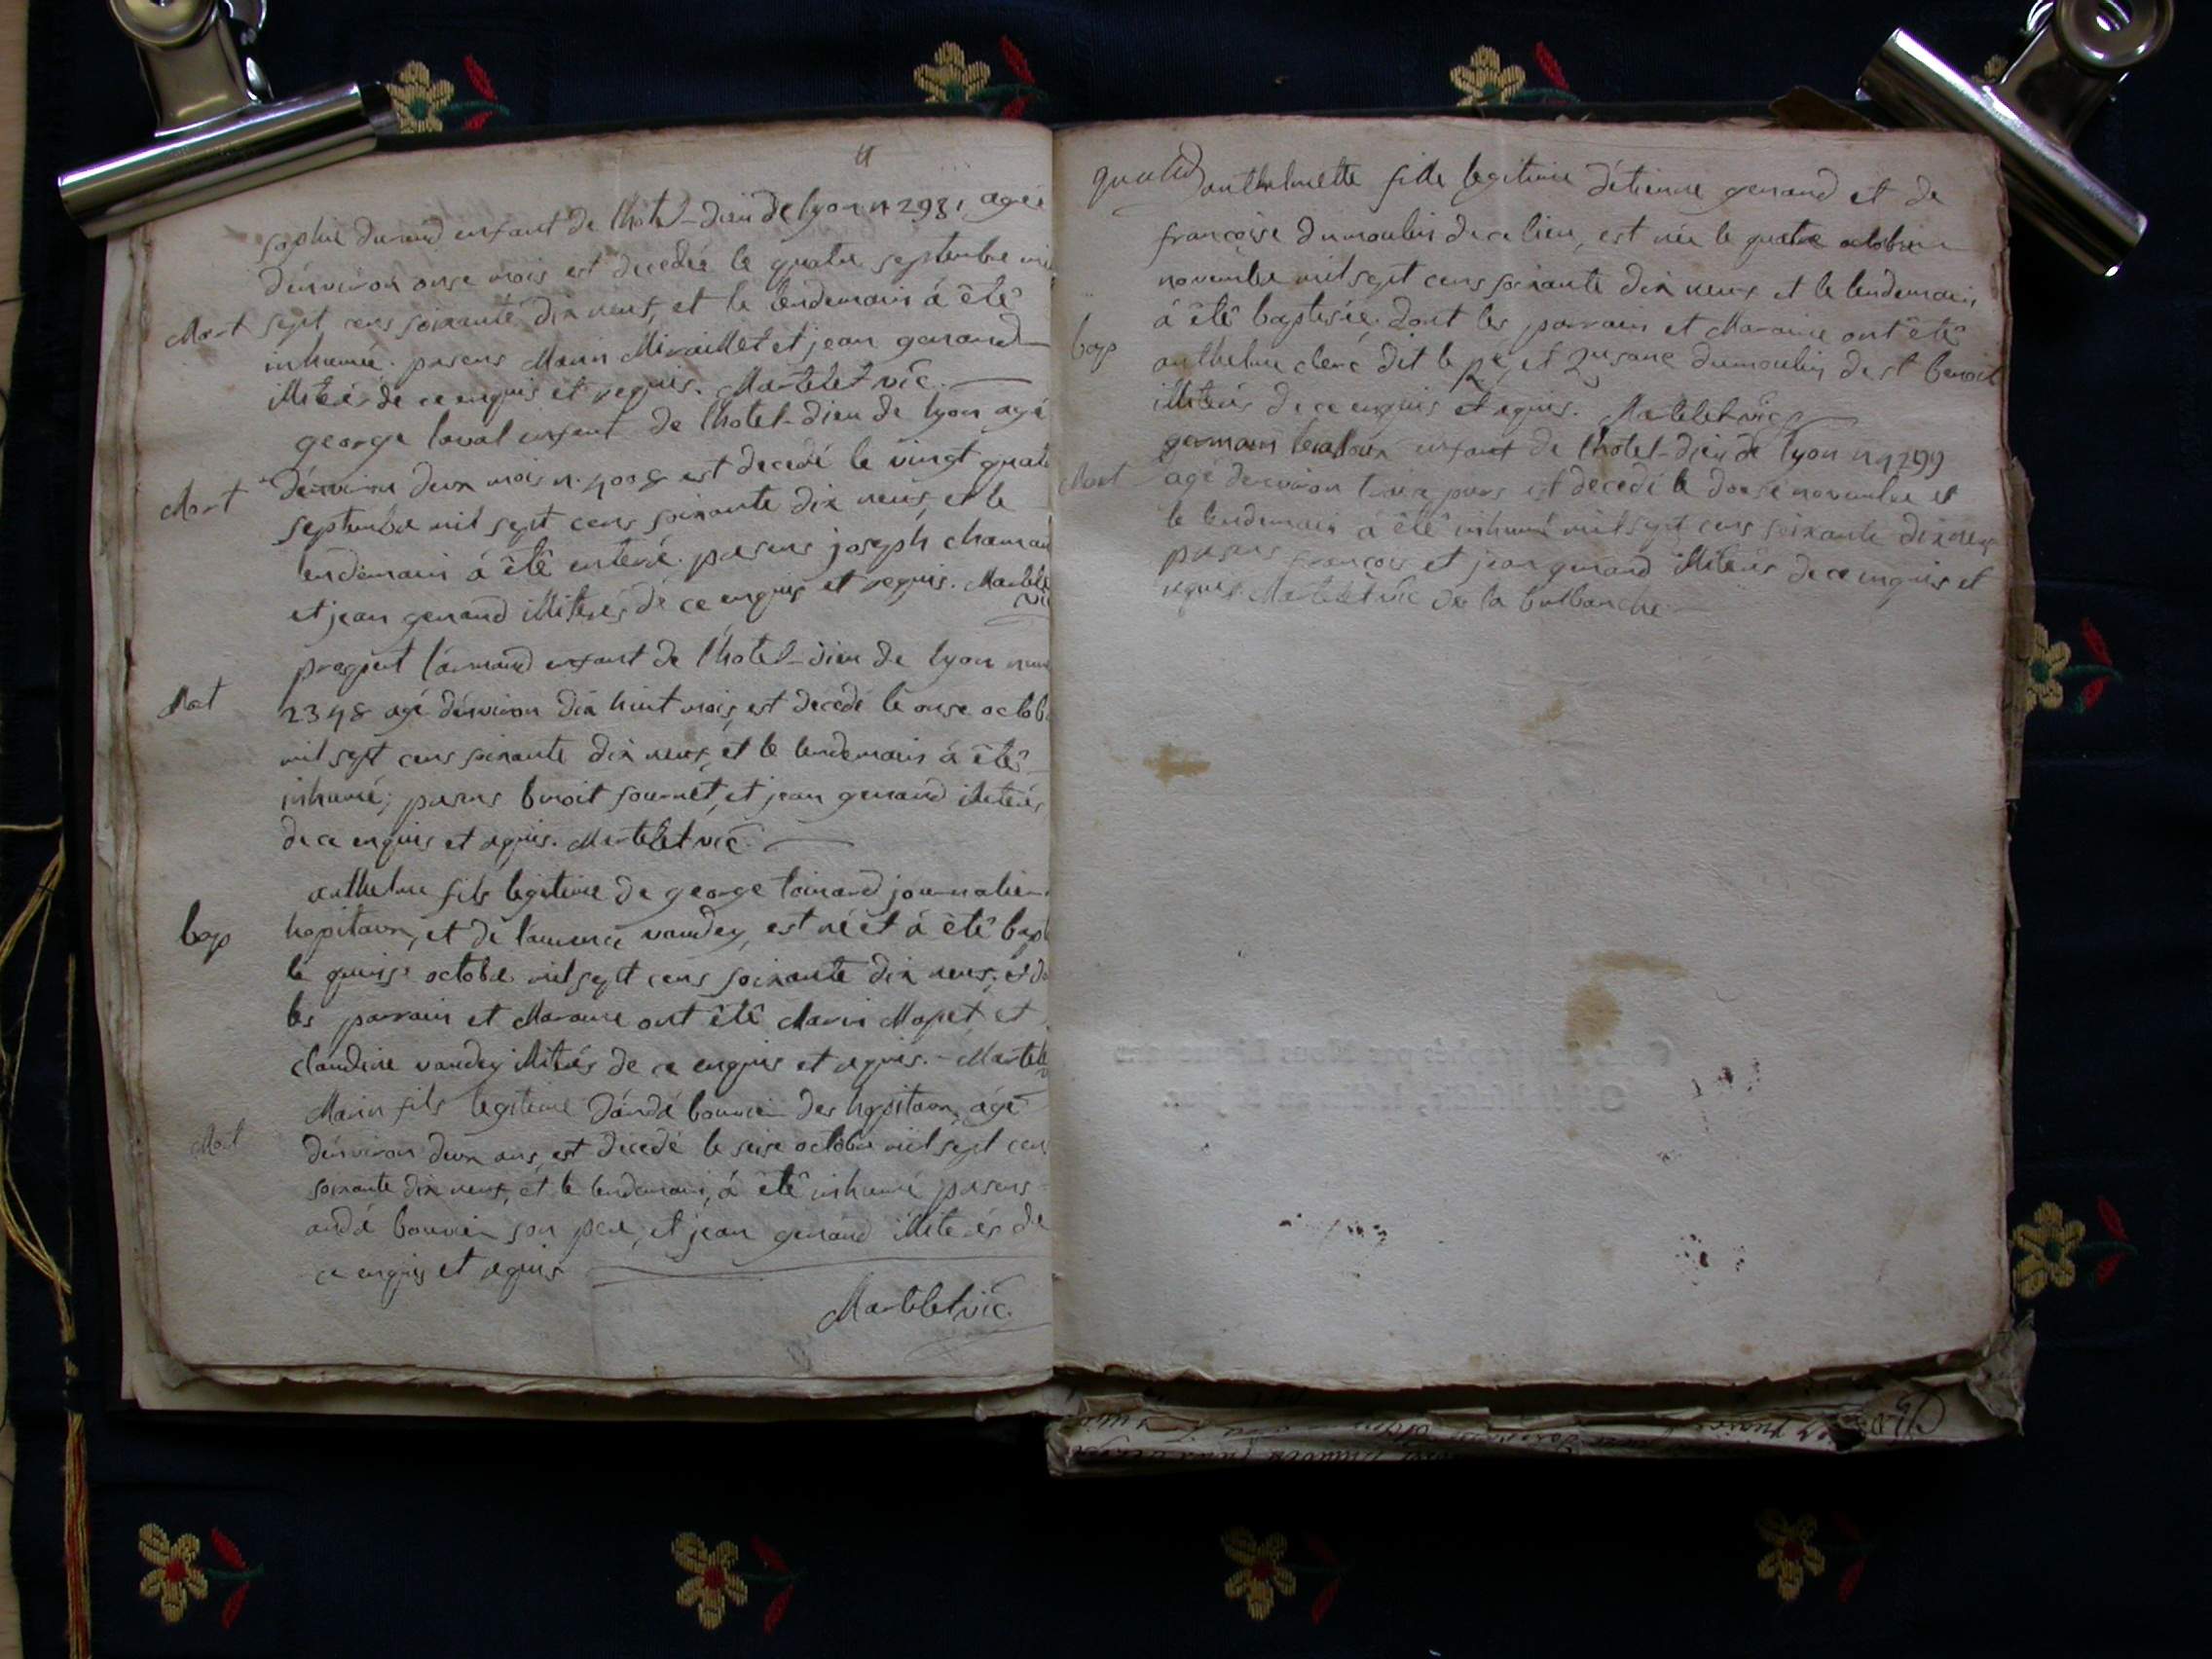 4
sophie durand enfant de lhotel-dieu de lyon n 2931 agée
d'énviron onse mois est decedée le quatre septembre mil
Mort sept cens soixante dix neuf, et le lendemain à êtê
inhumée. presens Marin Miraillet et jean genand
illiterés de ce enquis et requis. Martelet vic.
george laval enfant de lhotel-dieu de lyon agé
Mort d'énviron deux mois n. 4008 est decedé le vingt quatre
septembre mil sept cens soixante dix neuf, et le
lendemain à êtê enterré. presens joseph
et jean genand illiterés de ce enquis et requis. Martelet
vic
prospert enfant de lhotel-dieu de lyon
Mort 2348 agé d'énviron dix huit mois, est decedé le onse octob
mil sept cens soixante dix neuf, et le lendemain à êtê
inhumé; presens benoit fournet, et jean genand illiterés
de ce enquis et requis. Martelet vic.
anthelme fils legitime de george journalier
bap hopitaux, et de laurence vaudey, est né et à êtê bap
le quinse octobre mil sept cens soixante dix neuf, et do
les parrain et Maraine ont êtê Marin Mapet et
claudine vaudey illiterés de ce enquis et requis. - Martele
Marin fils legitime d'andré bouvier des hopitaux, agé
Mort d'énviron deux ans, est decedé le seise octobre mil sept cens
soixante dix neuf, et le lendemain, à êtê inhumé presens
andré bouvier son pere, et jean genand illiterés de
ce enquis et requis
Martelet vic.
anthelmette fille legitime d'étienne genand et de
françoise dumoulin de ce lieu, est née le quatre octobre
novembre mil sept cens soixante dix neuf et le lendemain
à êtê baptisée, dont les parrain et Maraine ont êtê
bap anthelme clerc dit le et Zusane dumoulin de st benoit
illiterés de ce enquis et requis. Martelet vic
germain enfant de lhotel-dieu de lyon n 4299
Mort agé d'environ jours est decedé le douse novembre et
le lendemain à êtê inhumé mil sept cens soixante dix neuf
presens françois et jean genand illiterés de ce enquis et
requis Martelet vic de la balbanche